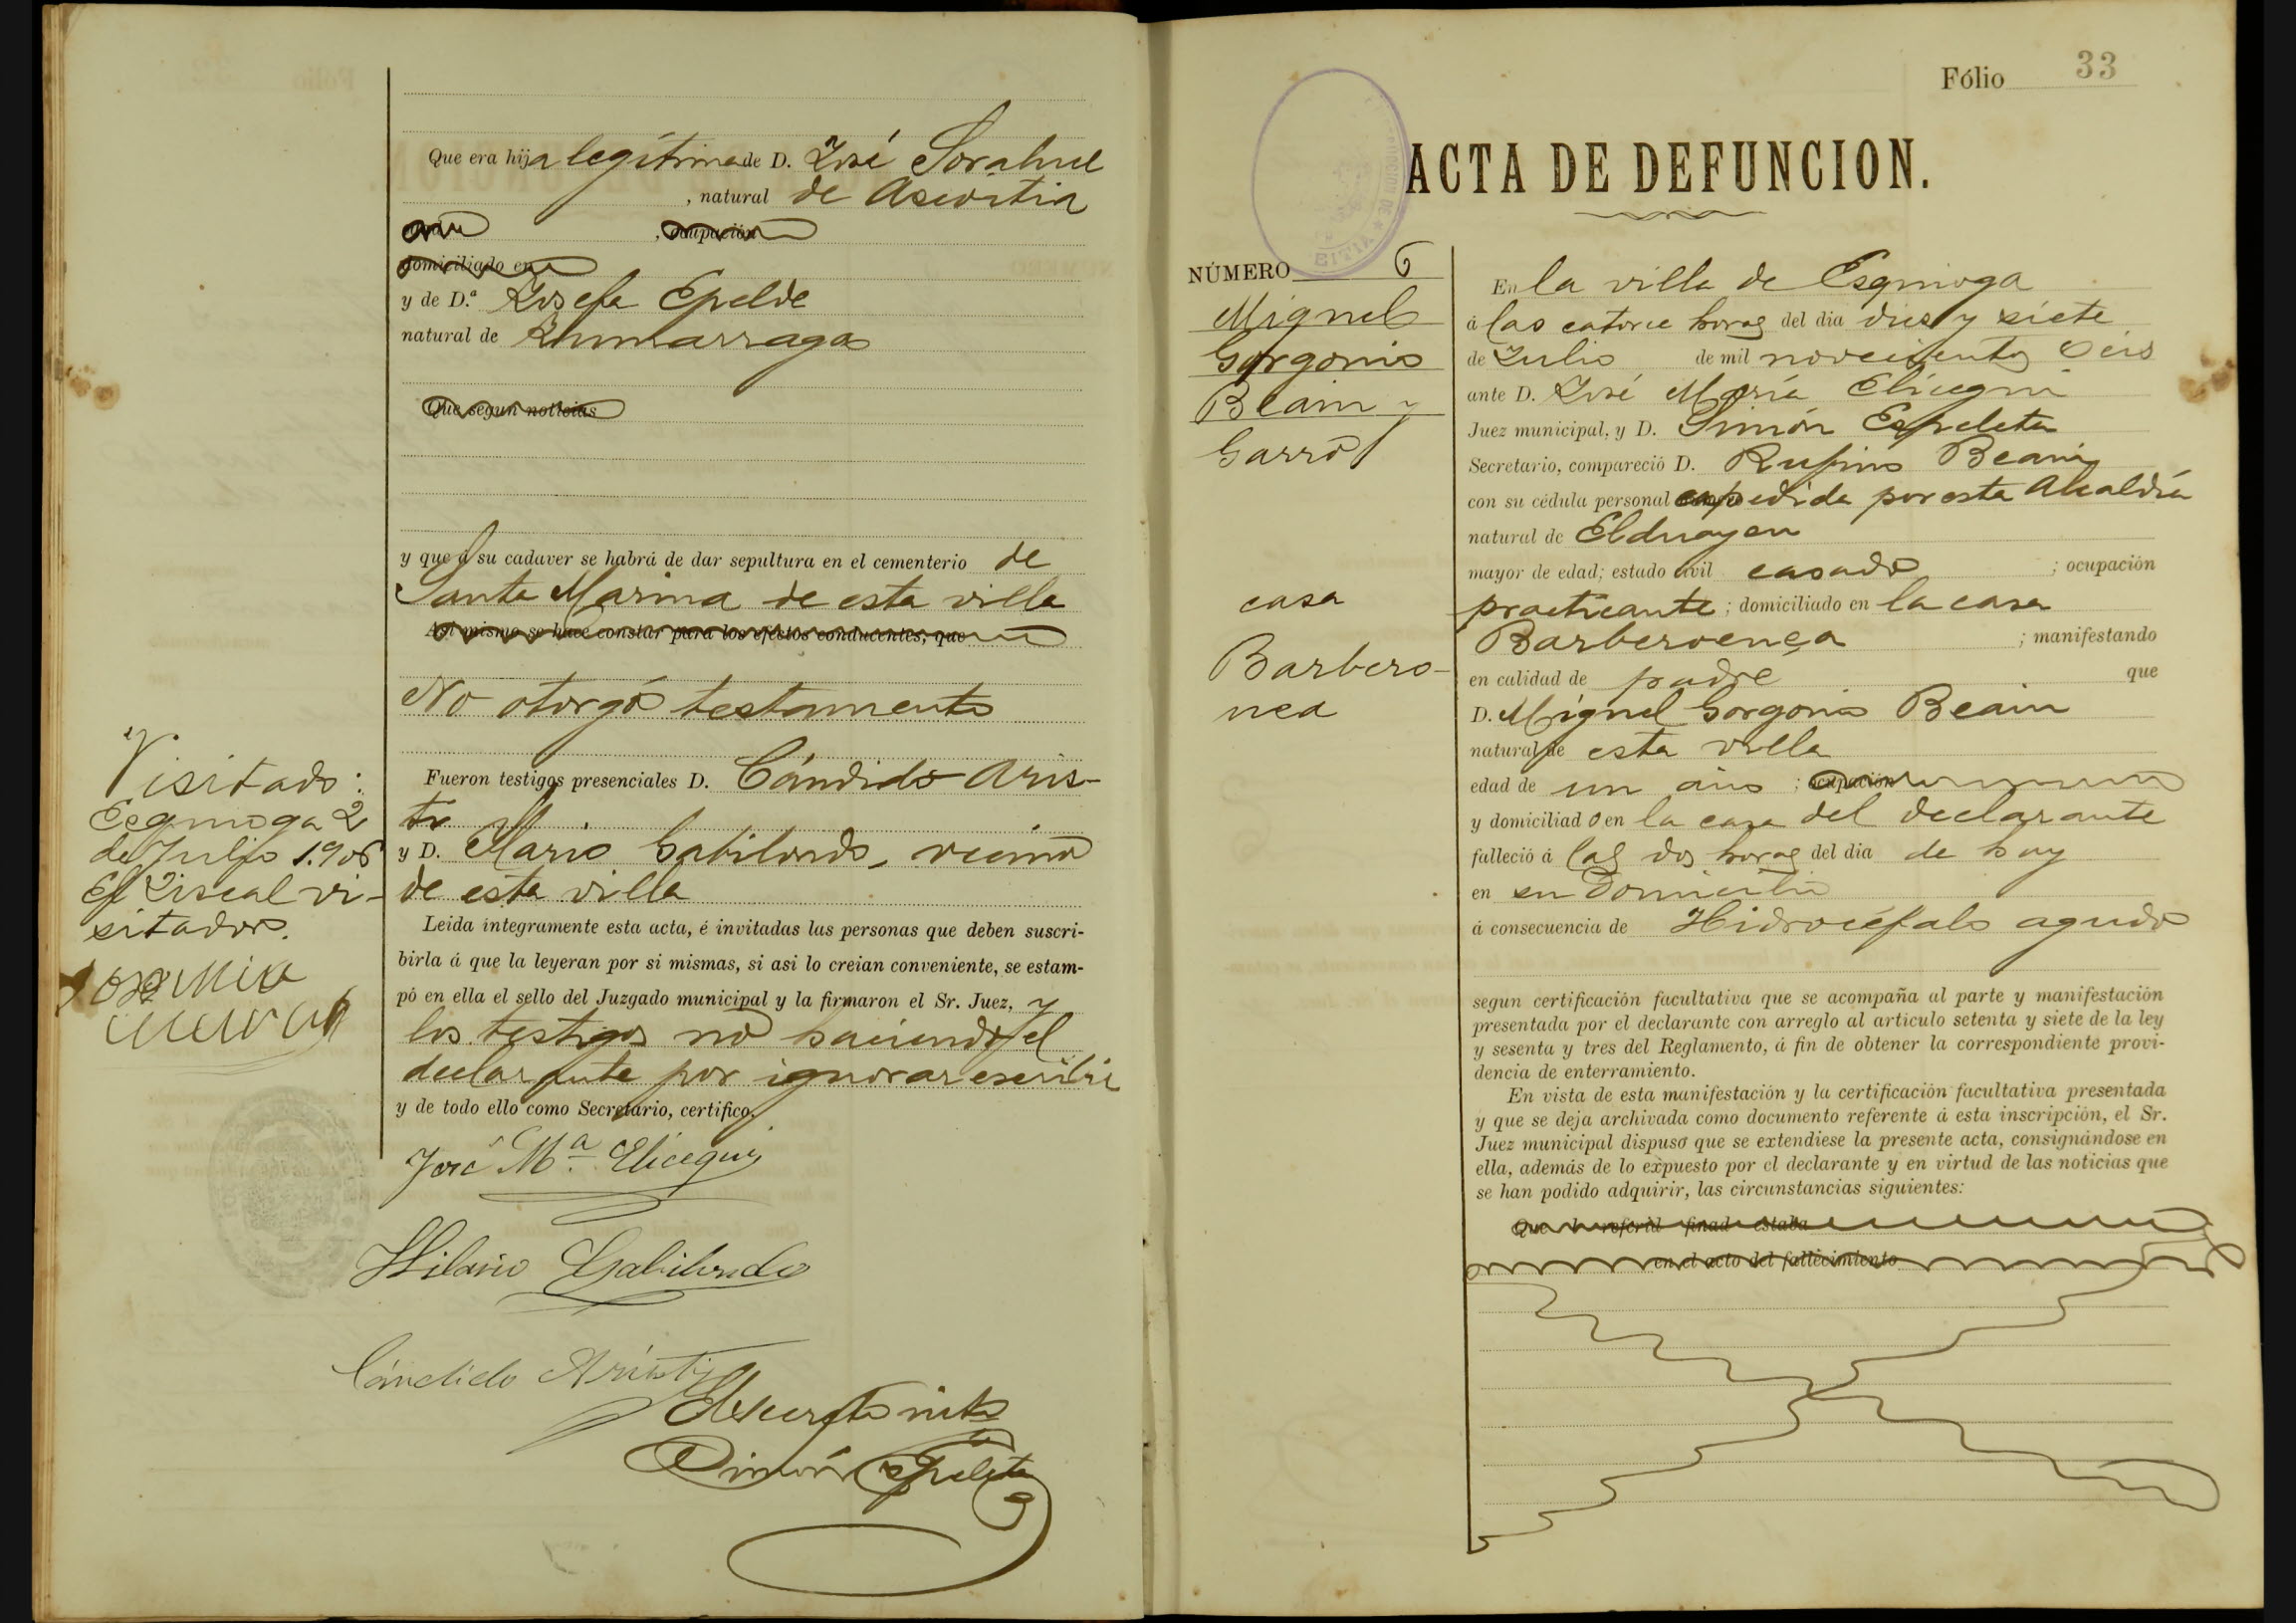 Que era hija legítima de D. José Sorahuel
, natural de Ascoitia
, ocupación
domiciliado en
y de D.ª Josefa Epelde
natural de Zumarraga
Que segun noticias
y que á su cadaver se habrá de dar sepultura en el cementerio de
Santa Marina de esta villa
Asi mismo se hace constar para los efectos conducentes, que
No otorgó testamento
Fueron testigos presenciales D. Cándido Aris-
ti
y D. Hario Gabilondo, vecino
de esta villa
Leida integramente esta acta, é invitadas las personas que deben suscri-
birla á que la leyeran por si mismas, si asi lo creian conveniente, se estam-
pó en ella el sello del Juzgado municipal y la firmaron el Sr. Juez, y
los testigos no haciendo el
declarante por ignorar escribir
y de todo ello como Secretario, certifico.
José Mª Elicegui
Hilario Gabilondo
Cándido Aristi
El Secretario
Simón Espeleta
Visitado:
Esquioga 2
de Julio 1.906
El Fiscal vi-
sitador.
Fólio 33
ACTA DE DEFUNCION.
NÚMERO 6
Miguel
Gorgonio
Beain y
Garro
casa
Barbero-
nea
En la villa de Esquioga
á las catorce horas del dia diez y siete
de Julio de mil novecientos seis
ante D. José María Elicegui
Juez municipal, y D. Simón Espeleta
Secretario, compareció D. Rufino Beain
con su cédula personal expedida por esta Alcaldía
natural de Elduayen
mayor de edad; estado civil casado ; ocupación
practicante ; domiciliado en la casa
Barberoenea ; manifestando
en calidad de padre que
D. Miguel Gorgonio Beain
natural de esta villa
edad de un año ; ocupación
y domiciliado en la casa del declarante
falleció á las dos horas del dia de hoy
en su domicilio
á consecuencia de Hidrocéfalo agudo
segun certificación facultativa que se acompaña al parte y manifestación
presentada por el declarante con arreglo al articulo setenta y siete de la ley
y sesenta y tres del Reglamento, á fin de obtener la correspondiente provi-
dencia de enterramiento.
En vista de esta manifestación y la certificación facultativa presentada
y que se deja archivada como documento referente á esta inscripción, el Sr.
Juez municipal dispuso que se extendiese la presente acta, consignándose en
ella, además de lo expuesto por el declarante y en virtud de las noticias que
se han podido adquirir, las circunstancias siguientes:
Que referid finad estaba
en el acto del fallecimiento